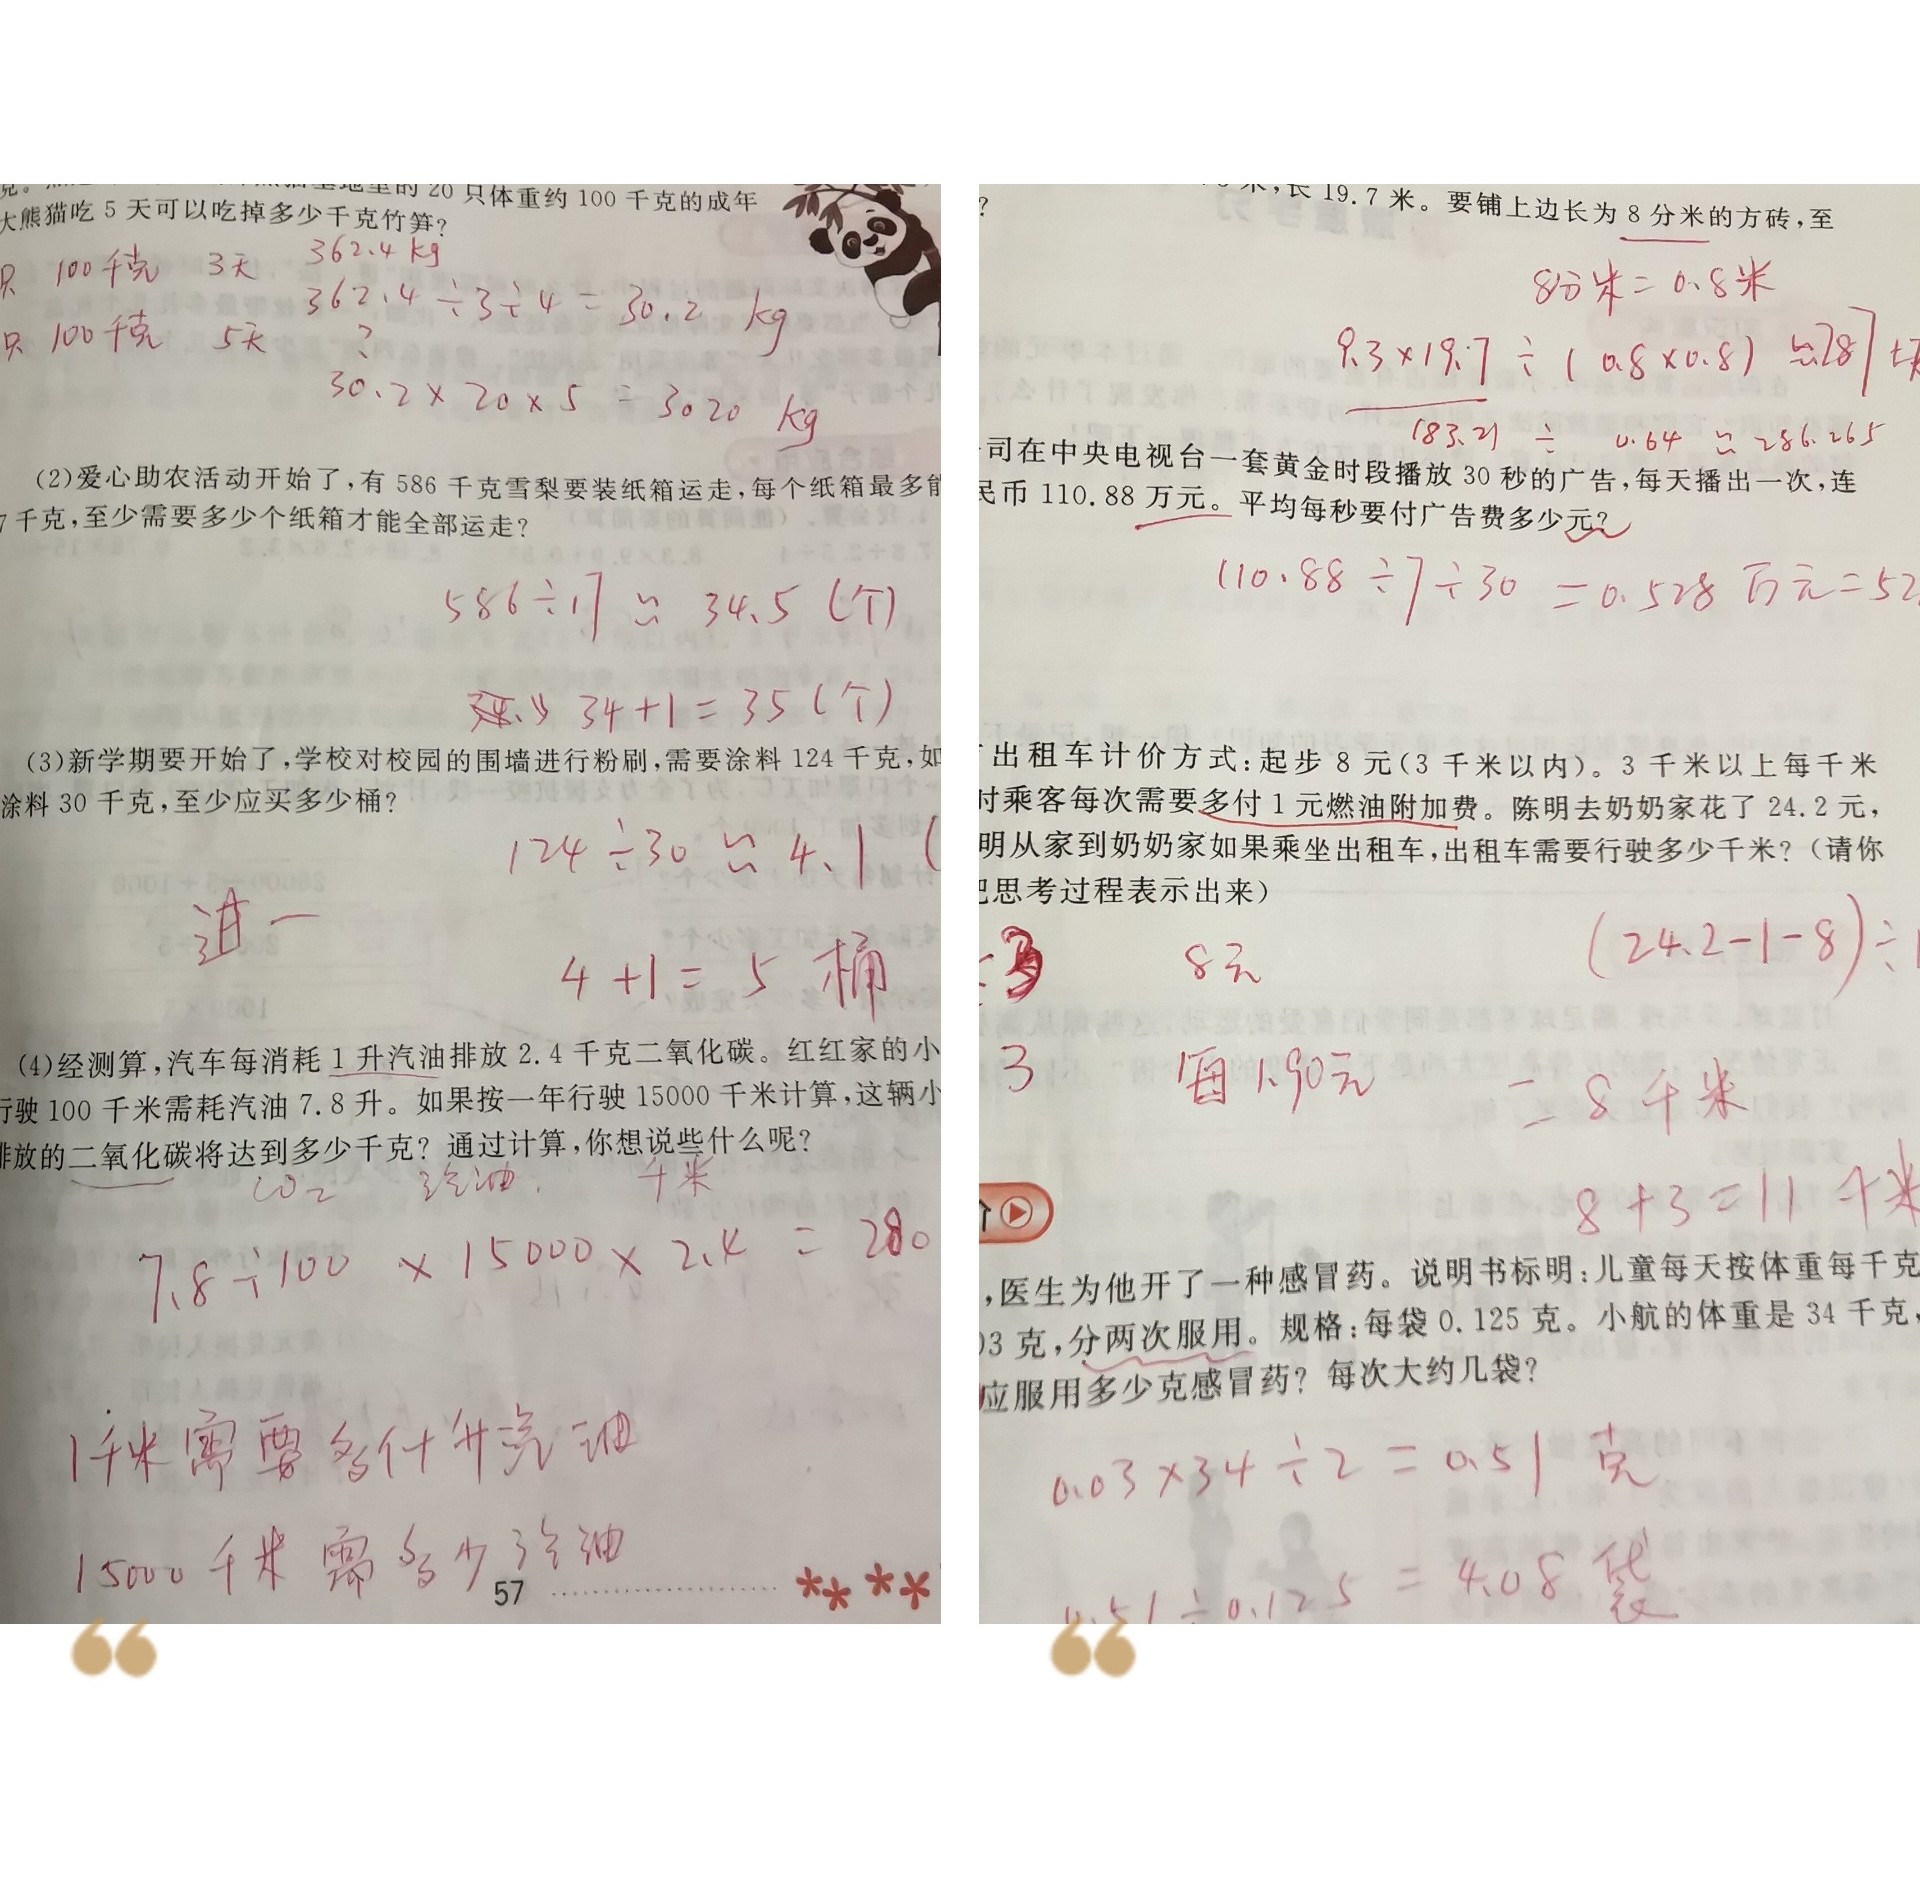 的 20 只体重约 100 千克的成年
大熊猫吃 5 天可以吃掉多少千克竹笋?
362.4 kg
只 100千克 3天
362.4÷3÷4=30.2 kg
只 100千克 5天 ?
30.2×20×5=3020 kg
(2)爱心助农活动开始了,有 586 千克雪梨要装纸箱运走,每个纸箱最多能
7 千克,至少需要多少个纸箱才能全部运走?
586÷17≈34.5(个)
34+1=35(个)
(3)新学期要开始了,学校对校园的围墙进行粉刷,需要涂料 124 千克,如
涂料 30 千克,至少应买多少桶?
124÷30≈4.1(
进一
4+1=5 桶
(4)经测算,汽车每消耗 1 升汽油排放 2.4 千克二氧化碳。红红家的小
行驶 100 千米需耗汽油 7.8 升。如果按一年行驶 15000 千米计算,这辆小
排放的二氧化碳将达到多少千克? 通过计算,你想说些什么呢?
CO2 汽油 千米
7.8÷100×15000×2.4=280
1千米需要多什升汽油
15000千米需多少汽油
57
米,长 19.7 米。要铺上边长为 8 分米的方砖,至
?
8分米=0.8米
9.3×19.7÷(0.8×0.8)≈287块
183.21÷0.64≈286.265
司在中央电视台一套黄金时段播放 30 秒的广告,每天播出一次,连
民币 110.88 万元。平均每秒要付广告费多少元?
110.88÷7÷30=0.528万元=52
出租车计价方式:起步 8 元(3 千米以内)。3 千米以上每千米
时乘客每次需要多付 1 元燃油附加费。陈明去奶奶家花了 24.2 元,
明从家到奶奶家如果乘坐出租车,出租车需要行驶多少千米?(请你
把思考过程表示出来)
3 8元 (24.2-1-8)÷1
3 1.90元 =8千米
8+3=11千米
,医生为他开了一种感冒药。说明书标明:儿童每天按体重每千克
03 克,分两次服用。规格:每袋 0.125 克。小航的体重是 34 千克,
应服用多少克感冒药? 每次大约几袋?
0.03×34÷2=0.51 克
0.51÷0.125=4.08 袋